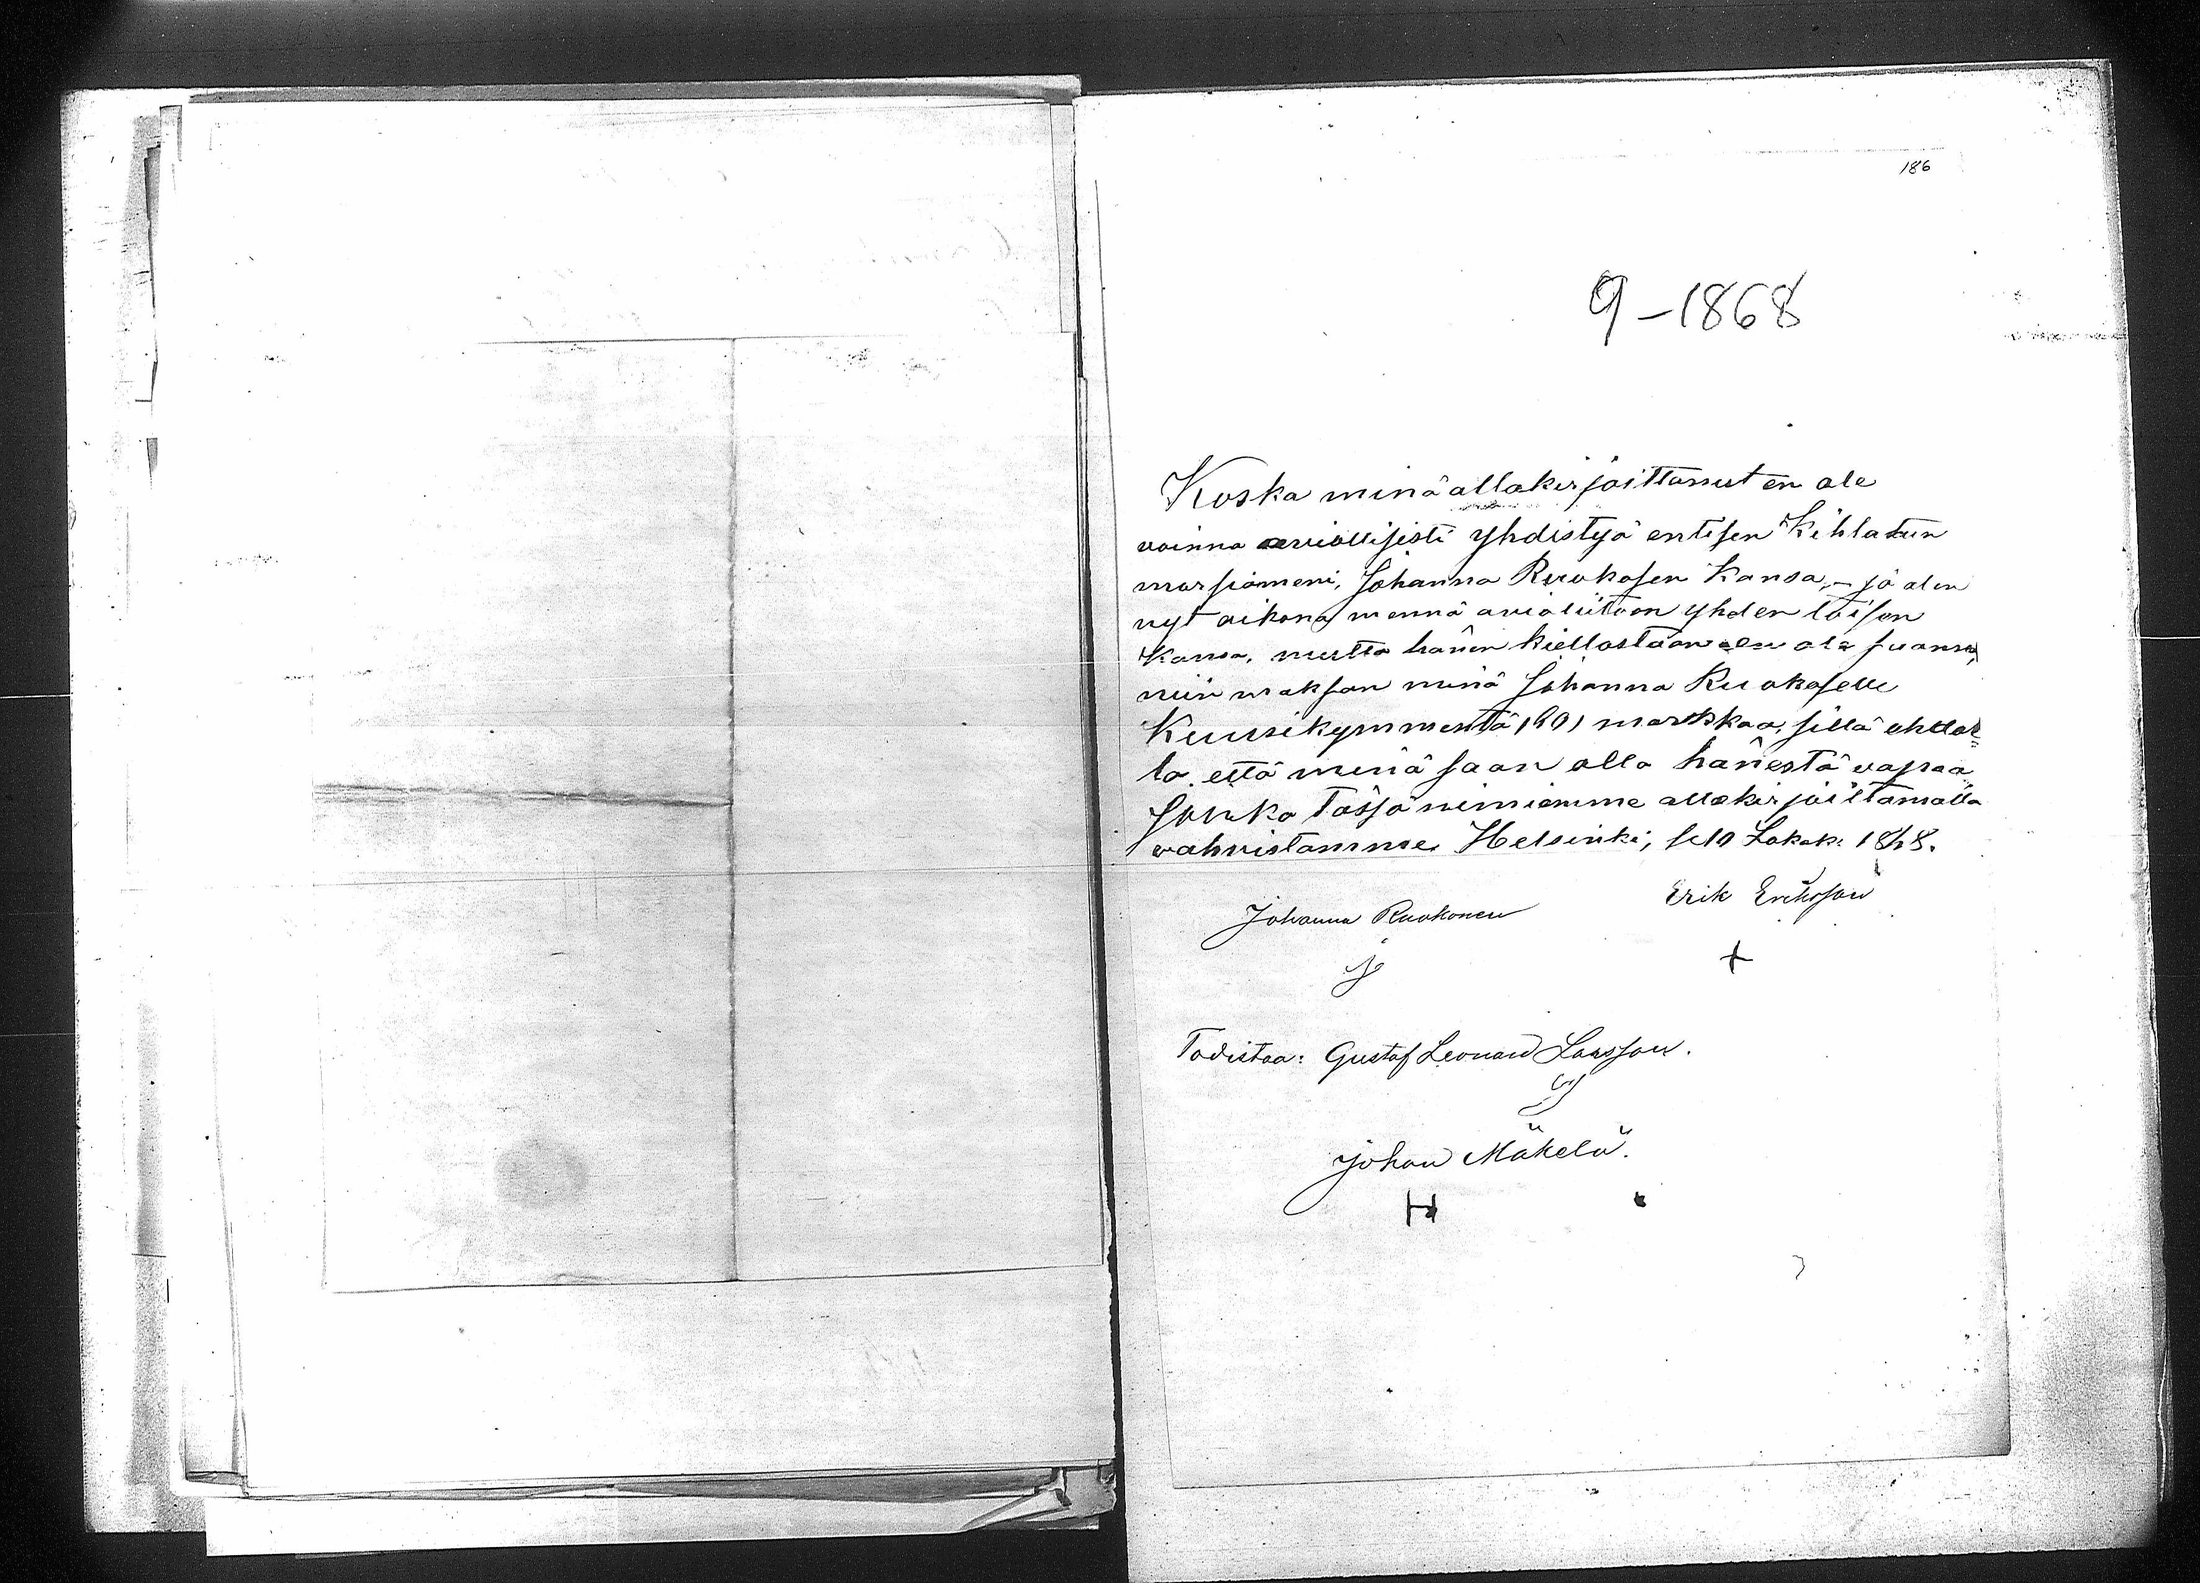 186
9-1868
Koska minä allakirjoittanut en ole
voinna aviollisesti yhdistyä entisen Kihlatun
morsiameni, Johanna Ruokosen kansa, – ja olen
nyt aikona mennä avioliitoon yhden toisen
Kansa, mutta hänen kiellostaan en ole saanu,
niin maksan minä Johanna Ruokoselle
Kuusikymmentä (60) markkaa, sillä ehdol=
la että minä saan olla hänestä vapaa
Jonka tässä nimiemme allekirjoittamalla
vahvistamme. Helsinki, se 10 Lokak. 1868.
Johanna Ruokonen Erik Eriksson
+
Todistaa: Gustaf Leonard Larsson.
Johan Mäkelä.
H